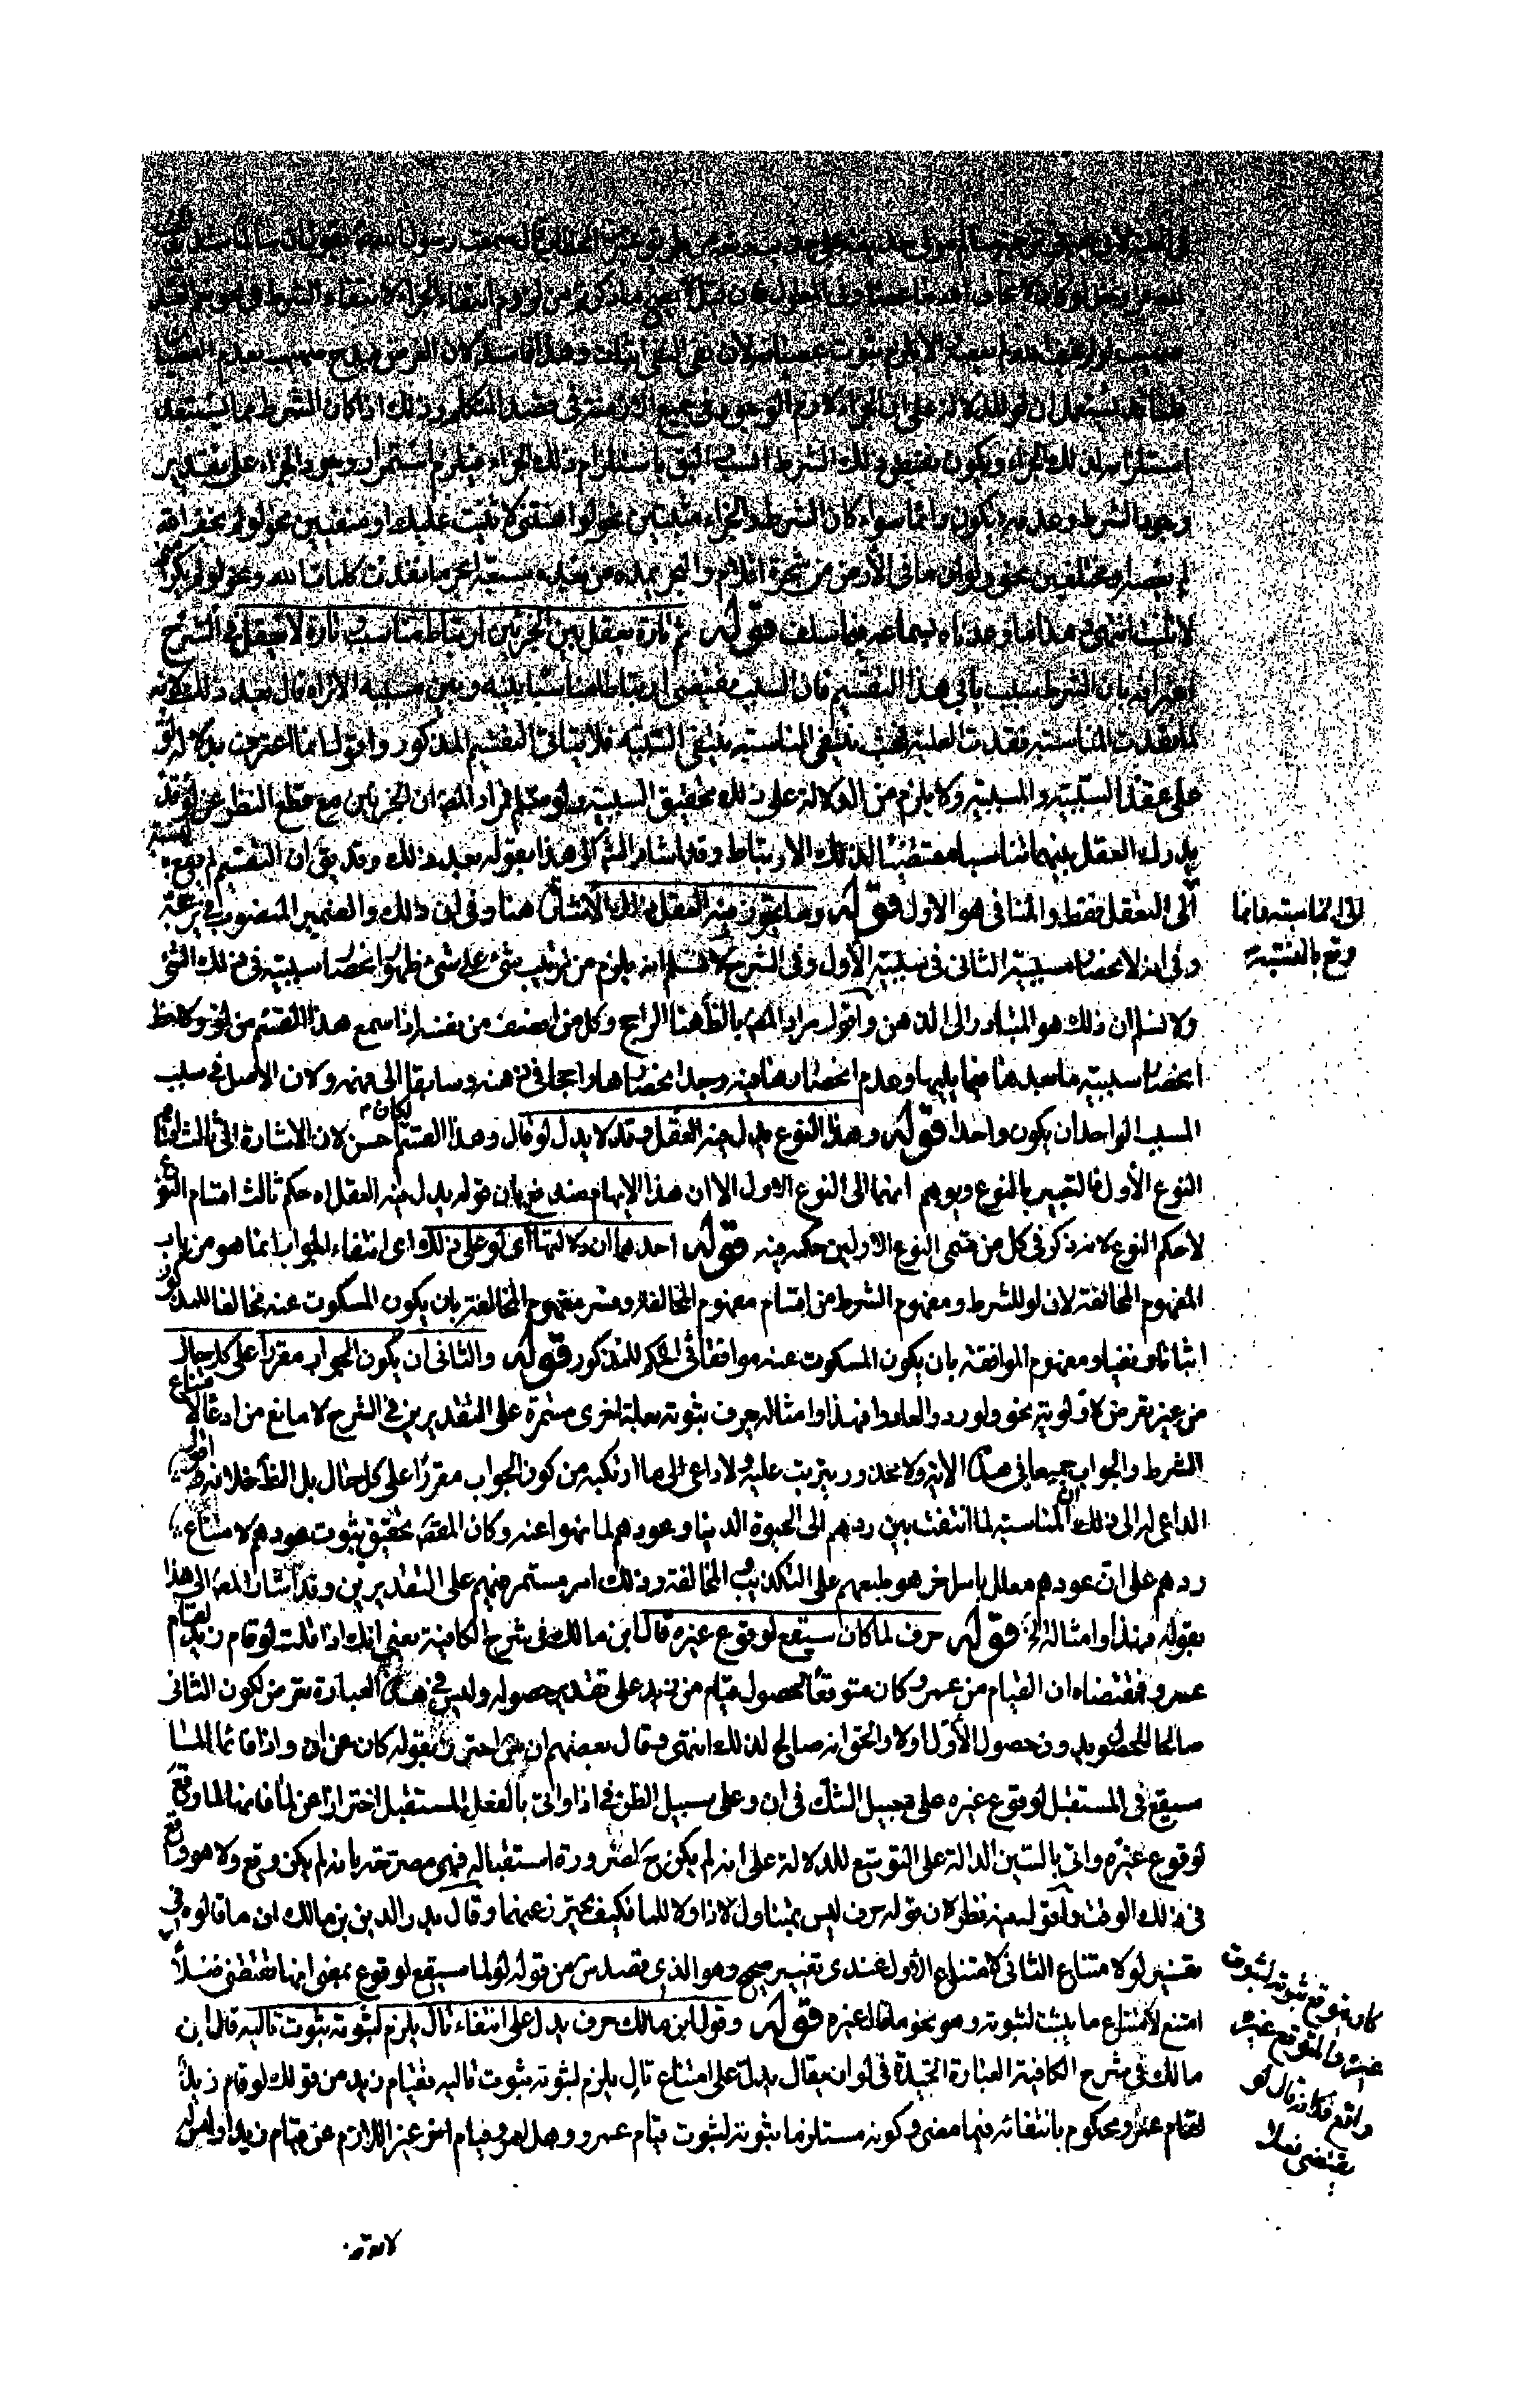 لله عز وجل لو كان لا يخاف الله ما عصاه فان قيل لا يصح ما ذكرتم من لزوم انتفاء الجزاء لانتفاء الشرط في نعم العبد
صهيب لو لم يخف الله لم يعصه والا لزم ثبوت عصيانه لان نفي النفي اثبات وهذا فاسد لان الغرض مدح صهيب بعدم العصيان
قلنا قد يستعمل ان لو للدلالة على ان الجزاء لازم الوجود في جميع الازمنة في قصد المتكلم وذلك اذا كان الشرط مما يستبعد
استلزامه لذلك الجزاء ويكون نقيض ذلك الشرط انسب واليق باستلزام ذلك الجزاء فيلزم استمرار وجود الجزاء على تقدير
وجود الشرط وعدمه فيكون دائما سواء كان الشرط والجزاء مثبتين نحو لو اهنتني لاثنيت عليك او منفيين نحو لو لم يخف الله
لم يعصه او مختلفين نحو ولو ان ما في الأرض من شجرة اقلام والبحر يمده من بعده سبعة ابحر ما نفدت كلمات الله ونحو لو لم تكرمني
لاثنيت انتهى هذا ما وعدناه بسماعه فيما سلف قوله ثم تارة يعقل بين الجزئين ارتباط مناسب وتارة لا يعقل في الشرح
اعترافه بان الشرط سبب يأبى هذا التقسيم فان السبب يقتضي ارتباطا مناسبا بينه وبين مسببه الا تراه قال بعد ذلك لانه
لما فقدت المناسبة فقدت العلية فحيث ينتفي المناسبة ينتفي السببية فلا يتأتى التقسيم المذكور واقول انما اعترف بدلالة لو
على عقد السببية والمسببية ولا يلزم من الدلالة على ذلك تحقيق السببية ولو سلم فمراد المص ان الجزئين مع قطع النظر عن لو قد
يدرك العقل بينهما تناسبا مقتضيا لذلك الارتباط وقد اشار الش الى هذا بقوله بعيد ذلك وقد يق ان التقسيم لم يقع بالنسبة
الى التعقل فقط والمنافى هو الاول قوله وما يجوز فيه العقل ذلك الاشارة هنا وفي ان ذلك والضمير المنصوب في يرجحه
وفي انه لانحصار مسببية الثاني في سببية الأول وفي الشرح لا نسلم انه يلزم من ترتيب شئ على شئ ظهور انحصار سببيته في ذلك الشئ
ولا نسلم ان ذلك هو المتبادر الى الذهن واقول مراد المص بالظهور هنا الراجح وكل من انصف من نفسه اذا سمع هذا القسم من لو ولاحظ
انحصار سببية ما بعدها فيما يليها وعدم انحصارها فيه وجد انحصارها راجحا في ذهنه وسابقا الى فهمه ولان الأصل في سبب
المسبب الواحد ان يكون واحدا قوله وهذا النوع يدل فيه العقل وقد لا يدل لو قال وهذا القسم لكان احسن لان الاشارة الى ثاني قسمى
النوع الأول فالتعبير بالنوع ويوهم انها الى النوع الاول الا ان هذا الايهام مندفع بان قوله يدل فيه العقل اه حكم ثالث اقسام النوع
لا حكم النوع لانه ذكر في كل من قسمى النوع الاولين حكمه فيه قوله احدهما ان دلالتها أى لو على ذلك اى انتفاء الجواب انما هو من باب
المفهوم المخالفة لان لو للشرط ومفهوم الشرط من اقسام مفهوم المخالفة وفسر مفهوم المخالفة بان يكون المسكوت عنه مخالفا للمذكور
اثباتا ونفيا ومفهوم الموافقة بان يكون المسكوت عنه موافقا في الحكم للمذكور قوله والثاني ان يكون الجواب مقررا على كل حال
من غير تعرض لاولوية نحو ولو ردوا لعادوا فهذا وامثاله يعرف ثبوته بعلة اخرى مستمرة على التقديرين في الشرح لا مانع من ادعاء امتناع
الشرط والجواب جميعا في هذه الاية ولا محذور يترتب عليه ولا داعى الى ما ارتكبه من كون الجواب مقررا على كل حال بل الظ خلافه واقول
الداعى له الى ذلك ان المناسبة لما انتفت بين ردهم الى الحيوة الدنيا وعودهم لما نهوا عنه وكان المقص تحقيق ثبوت عودهم لا امتناعه
ردهم على ان عودهم معلل بامر اخر هو طبعهم على التكذيب والمخالفة وذلك امر مستمر فيهم على التقديرين وقد اشار المص الى هذا
بقوله فهذا وامثاله الخ قوله حرف لما كان سيقع لوقوع غيره قال ابن مالك في شرح الكافية يعنى انك اذا قلت لو قام زيد لقام
عمرو فمقتضاه ان القيام من عمرو كان متوقعا لحصول قيام من زيد على تقدير حصوله وليس في هذه العبارة تعرض لكون الثانى
صالحا للحصول بدون حصول الأول او لا والحق انه صالح لذلك انتهى وقال بعضهم ان س احترز بقوله كان عن ان واذا فانهما لما
سيقع في المستقبل لوقوع غيره على سبيل الشك في ان وعلى سبيل الظن في اذا واتى بالفعل المستقبل احترازا عن لما فانها لما وقع
لوقوع غيره واتى بالسين الدالة على التوقع للدلالة على انه لم يكن ح لضرورة استقباله فهى مصرحة بانه لم يكن وقع ولا هو واقع
في ذلك الوقت واقول فيه نظر لان قوله حرف ليس بمتناول لاذا ولا للما فكيف يحترز عنهما وقال بدر الدين بن مالك ان ما قالوه في
تفسير لو لامتناع الثاني لامتناع الأول عندى تفسير صحيح وهو الذي يقصد س من قوله لو لما سيقع لوقوع بمعنى انها تقتضى فعلا
امتنع لامتناع ما يثبت لثبوته وهو نحو ما قال غيره قوله وقول ابن مالك حرف يدل على انتفاء تال يلزم لثبوته ثبوت تاليه قال ابن
مالك في شرح الكافية العبارة الجيدة في لو ان يقال يدل على امتناع تال يلزم لثبوته ثبوت تاليه فقيام زيد من قولك لو قام زيد
لقام عمرو محكوم بانتفائه فيما مضى وكونه مستلزما ثبوته لثبوت قيام عمرو وهل لعمرو قيام اخر غير اللازم عن قيام زيد او ليس له
الى المناسبة فانما
وقع بالنسبة
كان متوقع ثبوته لثبوت
غيره والمتوقع غير
واقع فكانه قال لو
يقتضى فعلا